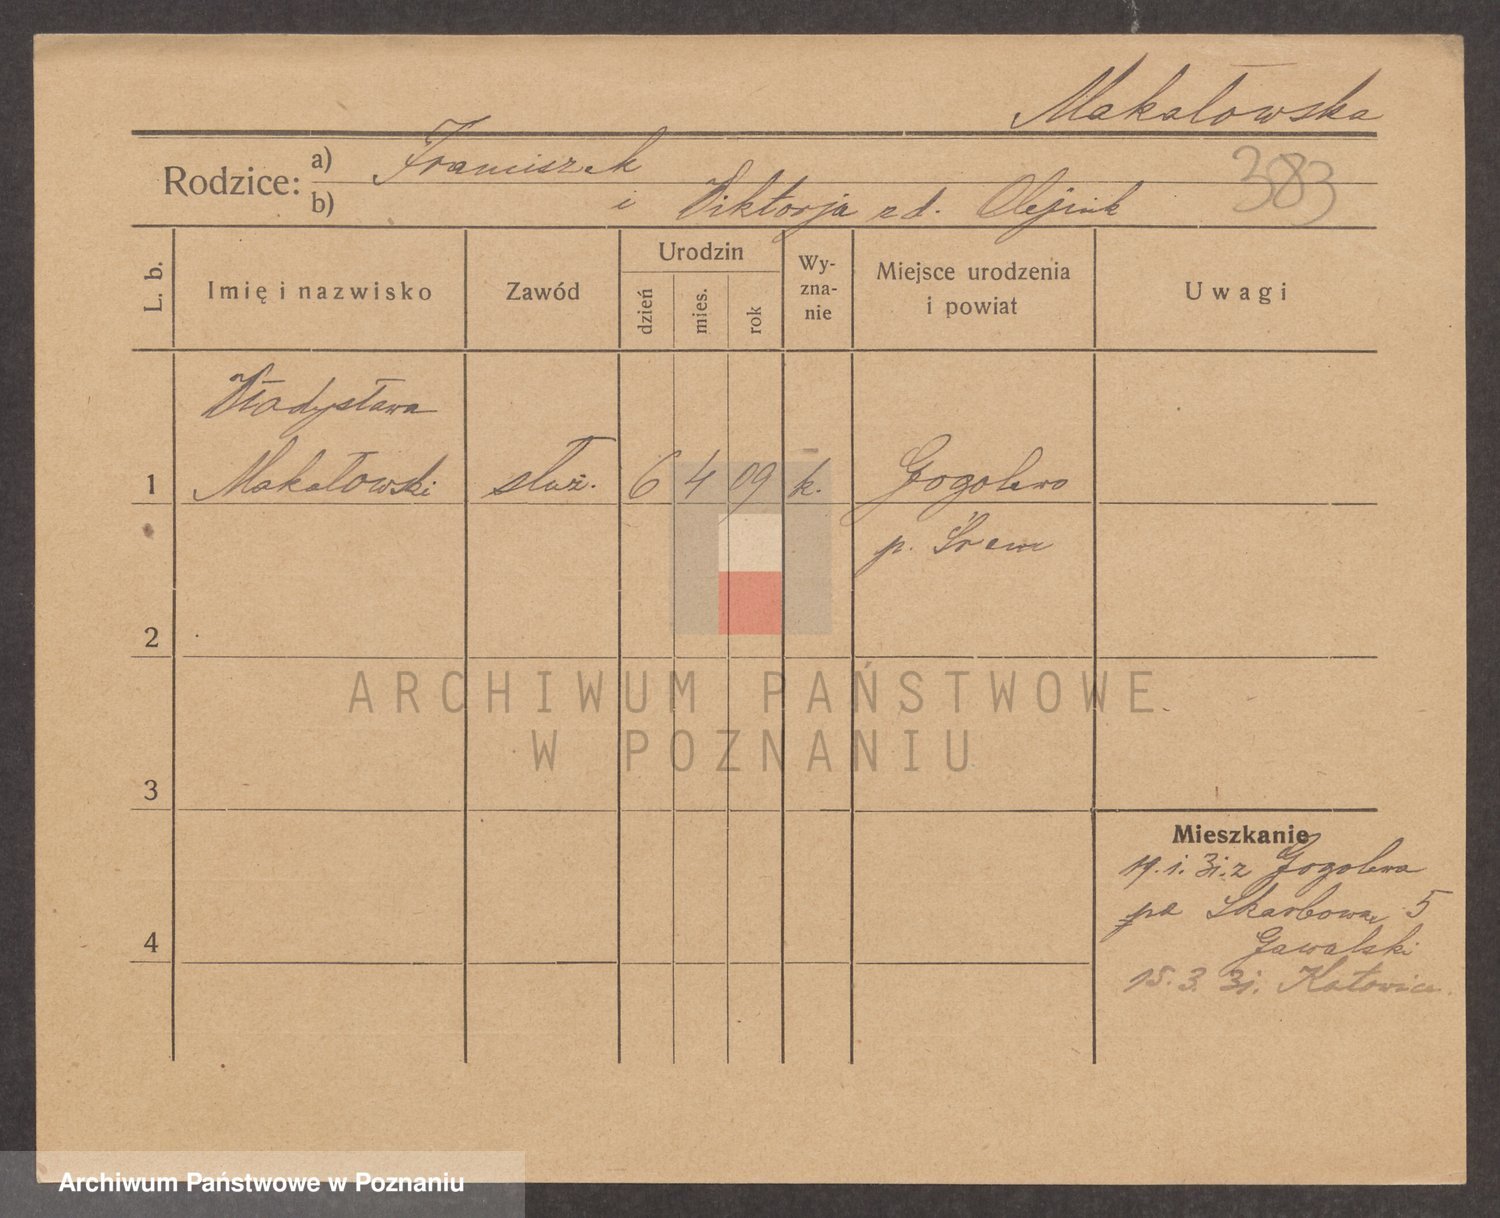 Makałowska
Rodzice: a) Franciszek
b) i Wiktorja z d. Olejnik
383
L. b. Imię i nazwisko Zawód Urodzin dzień mies. rok Wy-zna-nie Miejsce urodzenia i powiat Uwagi
Władysława
1 Makałowski służ. 6 4 09 k. Gogolewo
p. Śrem
2
ARCHIWUM PAŃSTWOWE
W POZNANIU
3
Mieszkanie
19. 1. 31. z Gogolewa
Skarbowa 5
4 Gawalski
15. 3. 31. Katowice
Archiwum Państwowe w Poznaniu